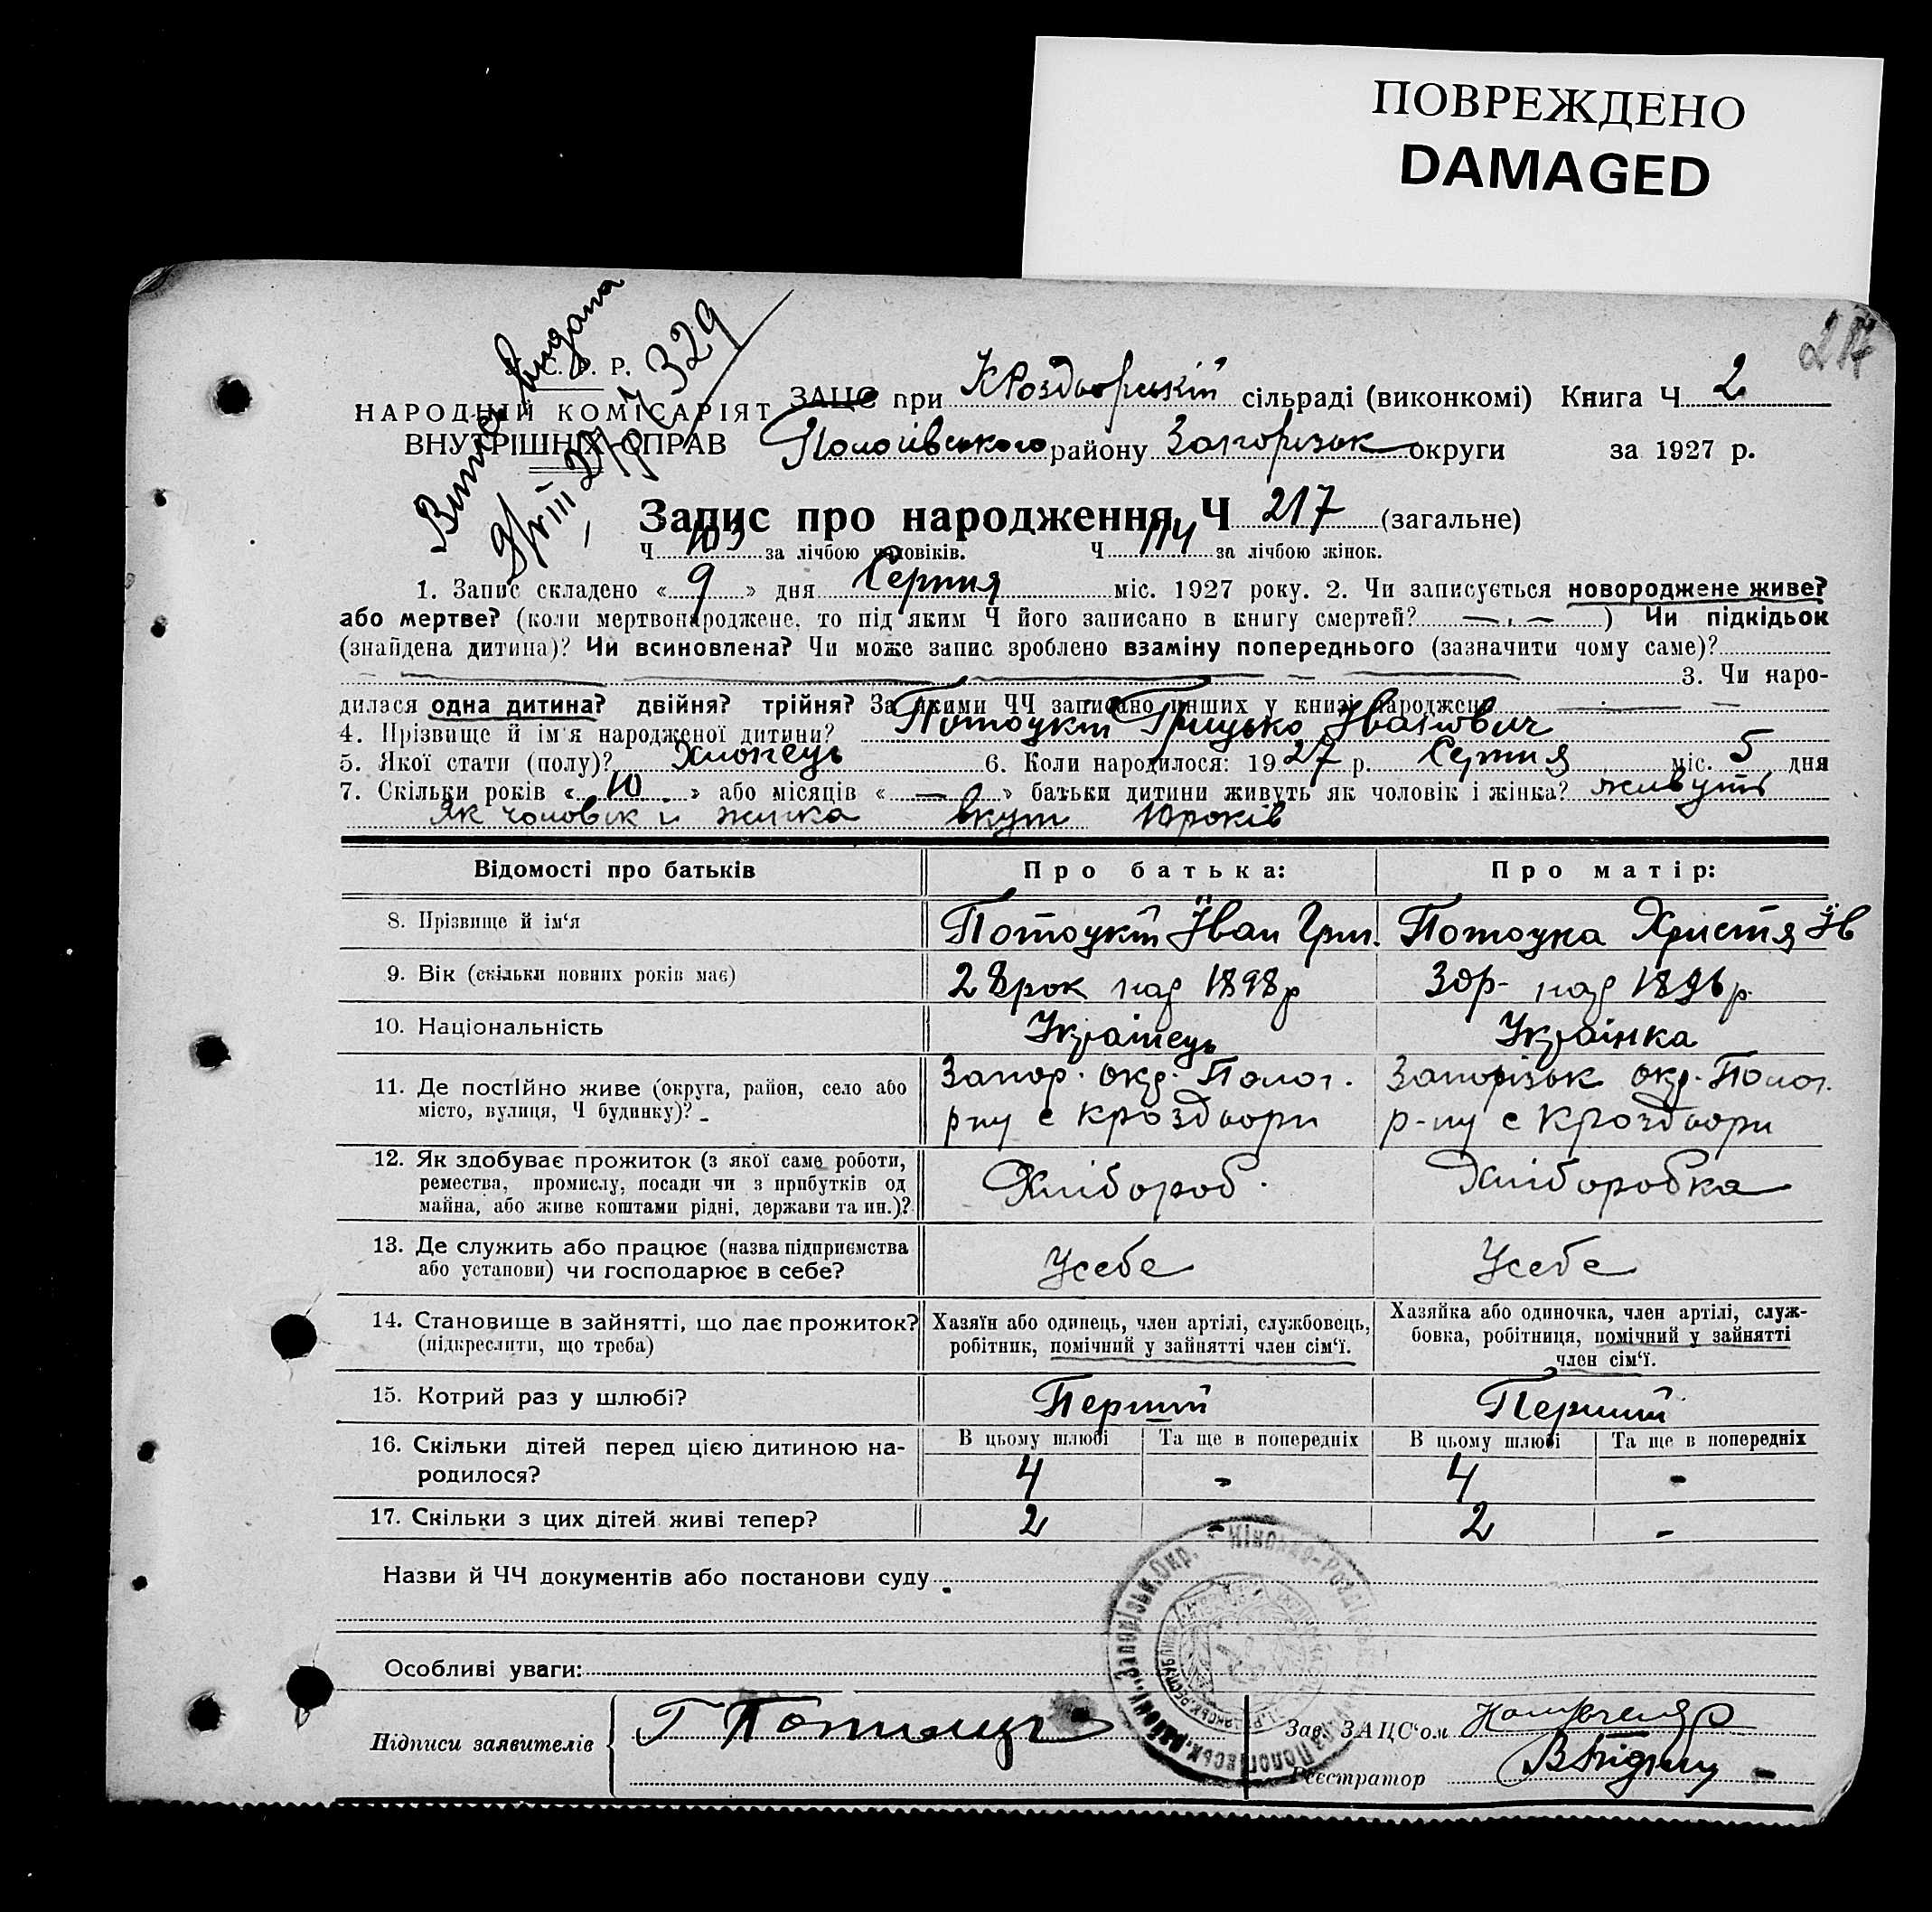 ПОВРЕЖДЕНО
DAMAGED
217
Витяг видано
9/VIII 27 р Ч 329
У. С. Р. Р.
НАРОДНІЙ КОМІСАРІЯТ
ВНУТРІШНІХ СПРАВ
ЗАЦС при КРоздорській сільраді (виконкомі) Книга Ч 2
Пологівського району Запорізьк округи за 1927 р.
Запис про народження Ч 217 (загальне)
Ч 103 за лічбою чоловіків. Ч 114 за лічбою жінок.
1. Запис складено « 9 » дня Серпня міс. 1927 року. 2. Чи записується новороджене живе?
або мертве? (коли мертвонароджене, то під яким Ч його записано в книгу смертей? — . — ) Чи підкідьок
(знайдена дитина)? Чи всиновлена? Чи може запис зроблено взаміну попереднього (зазначити чому саме)?
3. Чи наро-
дилася одна дитина? двійня? трійня? За якими ЧЧ записано инших у книзі народжень
4. Прізвище й ім'я народженої дитини? Потоцкій Грицько Іванович
5. Якої стати (полу)? Хлопець 6. Коли народилося: 1927 р. Серпня міс. 5 дня
7. Скільки років « 10 » або місяців « — » батьки дитини живуть як чоловік і жінка? живуть
Як чоловік и жінка вкупі 10 років
Відомості про батьків Про батька: Про матір:
8. Прізвище й ім'я Потоцкій Іван Гри. Потоцка Христя Ів
9. Вік (скільки повних років має) 28 рок нар 1898 р 30 р- нар 1896 р.
10. Національність Українець Українка
11. Де постійно живе (округа, район, село або місто, вулиця, Ч будинку)? Запор. окр. Полог. р-ну с Кроздори Запорізьк окр. Полог. р-ну с Кроздори
12. Як здобуває прожиток (з якої саме роботи, ремества, промислу, посади чи з прибутків од майна, або живе коштами рідні, держави та ин.)? Хлібороб. Хліборобка
13. Де служить або працює (назва підприємства або установи) чи господарює в себе? Усебе Усебе
14. Становище в зайнятті, що дає прожиток? (підкреслити, що треба) Хазяїн або одинець, член артілі, службовець, робітник, помічний у зайнятті член сім'ї. Хазяйка або одиночка, член артілі, служ-бовка, робітниця, помічний у зайнятті член сім'ї.
15. Котрий раз у шлюбі? Перший Перший
16. Скільки дітей перед цією дитиною на-родилося? В цьому шлюбі 4 Та ще в попередніх - В цьому шлюбі 4 Та ще в попередніх -
17. Скільки з цих дітей живі тепер? 2 - 2 -
Назви й ЧЧ документів або постанови суду
Особливі уваги:
Підписи заявителів Г Потоцкі
Зав. ЗАЦС'ом
Реєстратор